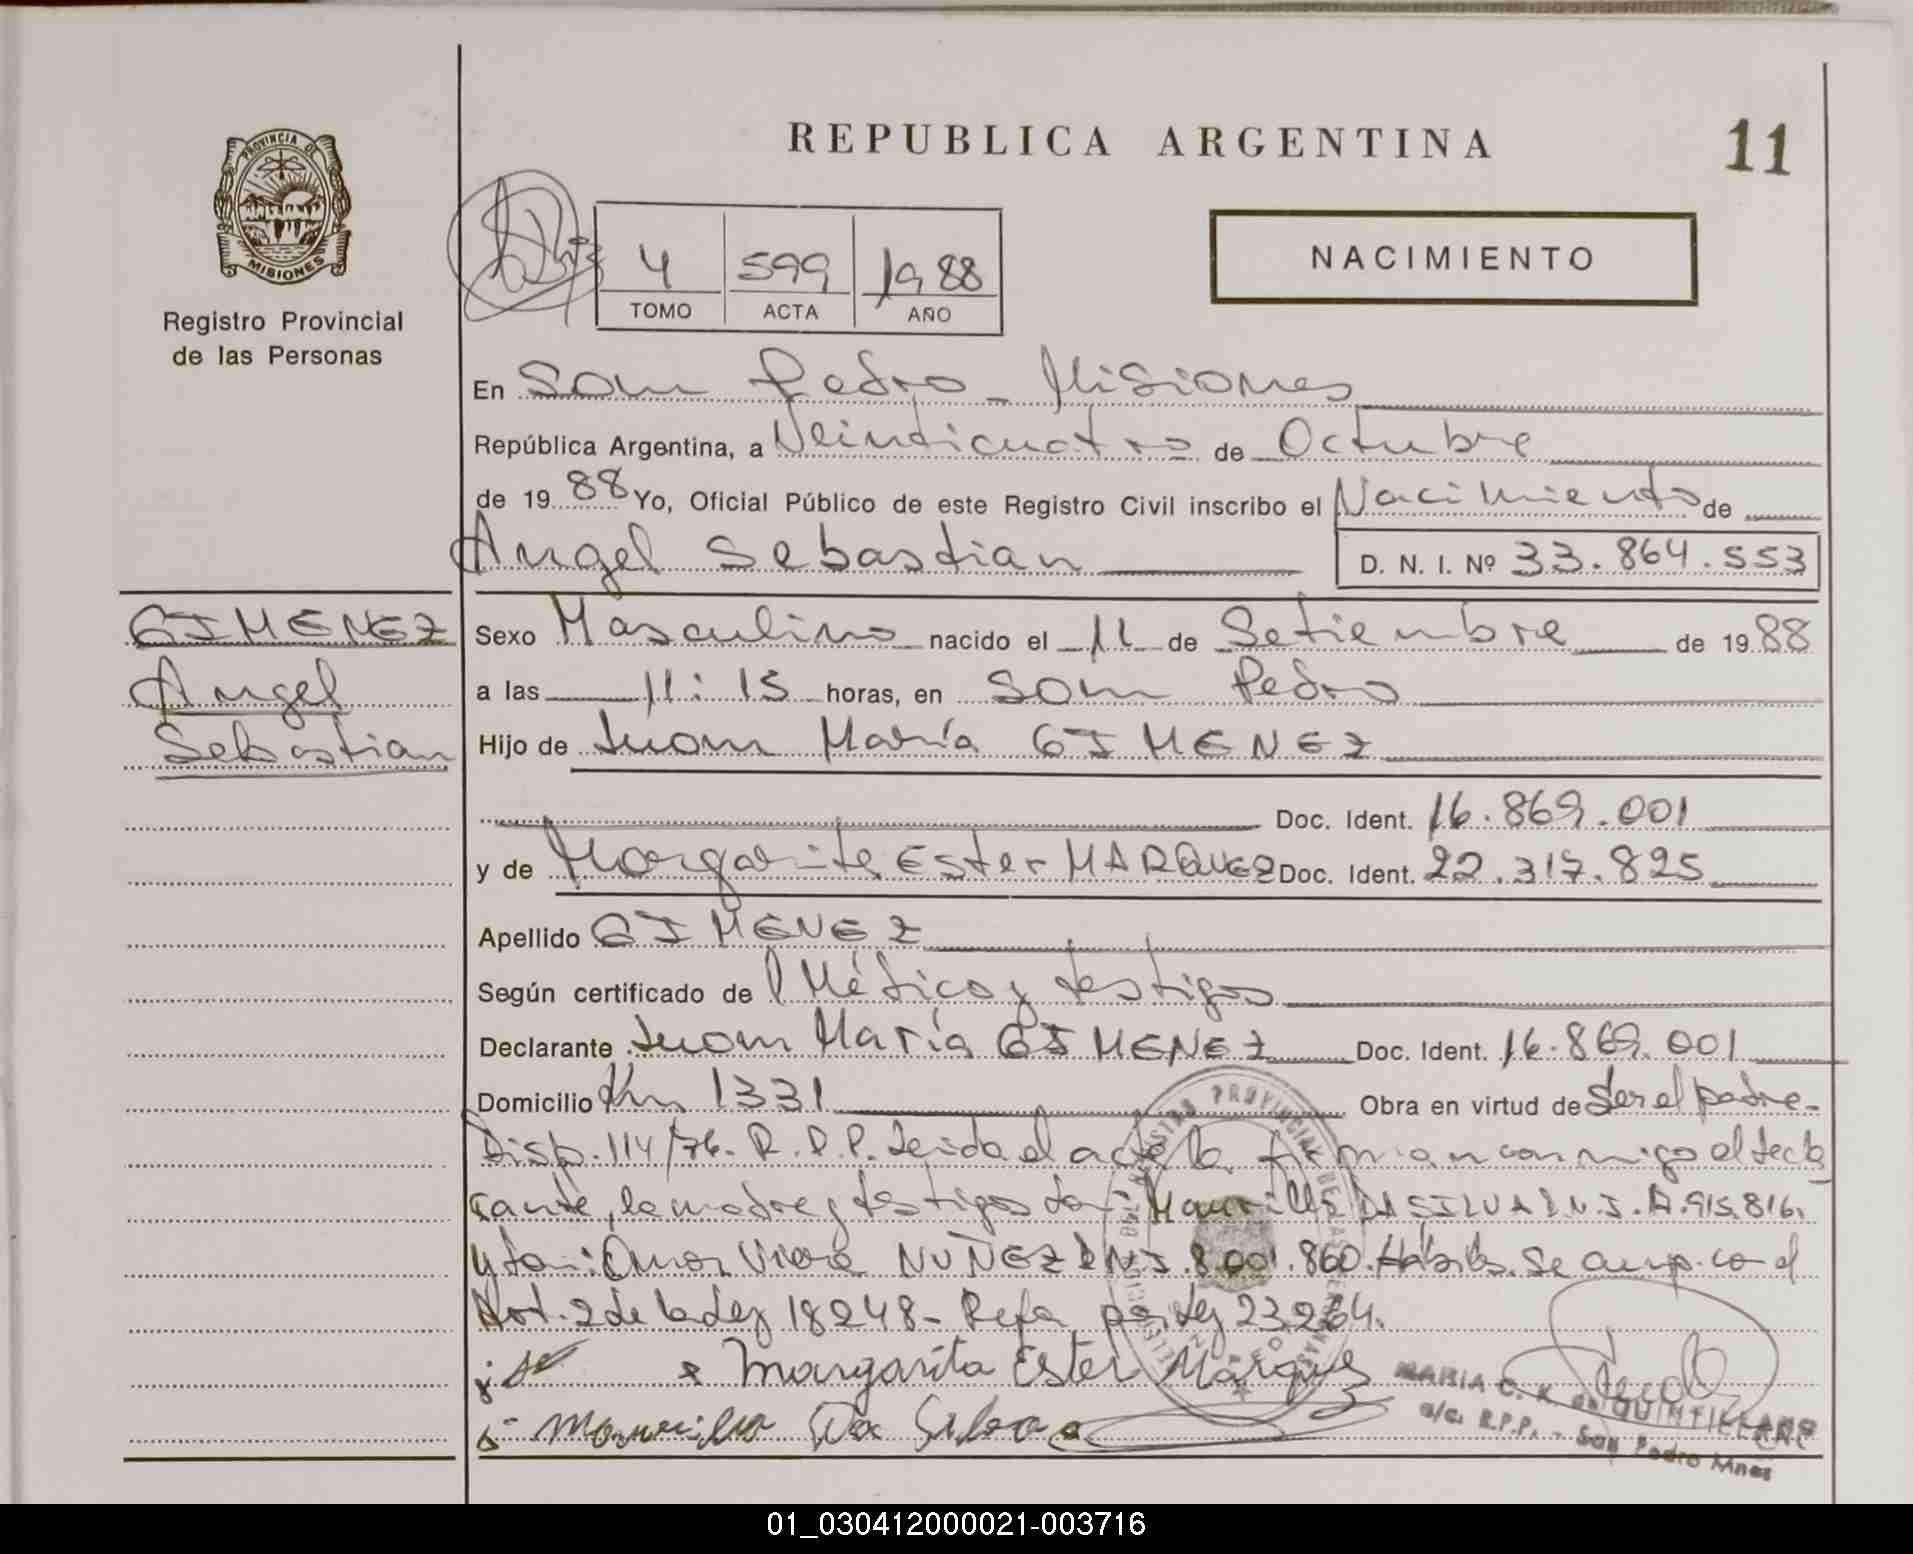 REPUBLICA ARGENTINA
11
PROVINCIA DE
MISIONES
Registro Provincial
de las Personas
4 599 1988
TOMO ACTA AÑO
NACIMIENTO
En San Pedro - Misiones
República Argentina, a Veinticuatro de Octubre
de 19 88 Yo, Oficial Público de este Registro Civil inscribo el Nacimiento de
Angel Sebastian D. N. I. Nº 33.864.553
GIMENEZ
Angel
Sebastian
Sexo Masculino nacido el 11 de Setiembre de 19 88
a las 11:15 horas, en San Pedro
Hijo de Juan María GIMENEZ
Doc. Ident. 16.869.001
y de Margarita Ester MARQUEZ Doc. Ident. 22.317.825
Apellido GIMENEZ
Según certificado de l Médico y testigos
Declarante Juan María GIMENEZ Doc. Ident. 16.869.001
Domicilio Km 1331 Obra en virtud de Ser el padre-
Disp. 114/76- R.P.P. Leida el acta la firman conmigo el decla
rante, la madre y testigos don: Maurilio DA SILVA D.N.I. 915.816.
y don: Omar NUÑEZ DNI. 8.001.860. Habiles. Se cump. con el
Art. 2 de la Ley 18248- Refa por Ley 23264.
Margarita Ester Márquez
Maurilio Da Silva
MARIA C. K. de QUINTILLANO
a/c. R.P.P. - San Pedro Mnes
01_030412000021-003716